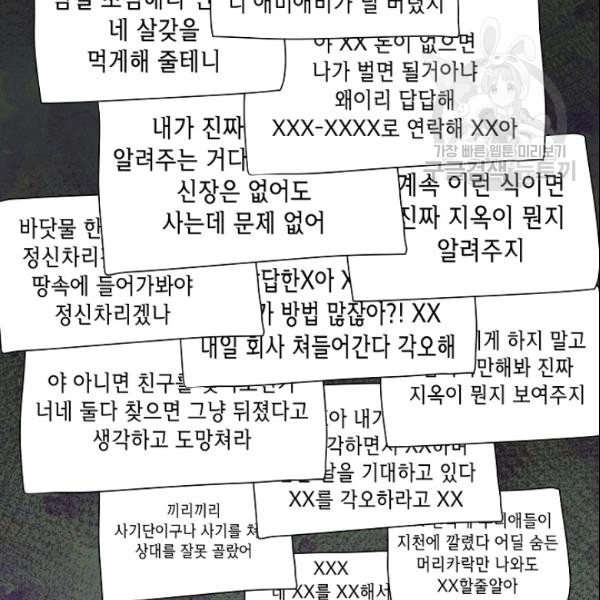 네 살갗을
먹게해 줄테니
아 XX 돈이 없으면
나가 벌면 될거아냐
왜이리 답답해
XXX-XXXX로 연락해 XX아
내가 진짜
알려주는 거다
신장은 없어도
사는데 문제 없어
계속 이런 식이면
진짜 지옥이 뭔지
알려주지
바닷물 한
정신차리
땅속에 들어가봐야
정신차리겠나
방법 많잖아?! XX
내일 회사 쳐들어간다 각오해
하지 말고
진짜
지옥이 뭔지 보여주지
야 아니면 친구를
너네 둘다 찾으면 그냥 뒤졌다고
생각하고 도망쳐라
내가
XX하며
기대하고 있다
XX를 각오하라고 XX
끼리끼리
사기단이구나 사기를 쳐
상대를 잘못 골랐어
지천에 깔렸다 어딜 숨든
머리카락만 나와도
XX할줄알아
XXX
네 XX를 XX해서
가장 빠른 웹툰 미리보기